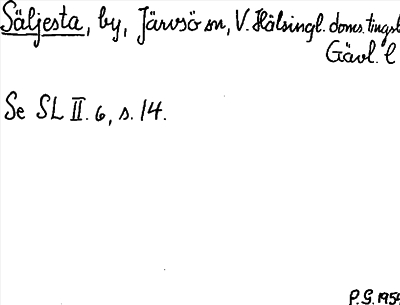 Säljesta, by, Järvsö sn, V. Hälsingl. doms. tingsl
Gävl. l
Se SL II. 6, s. 14.
P.G. 1959